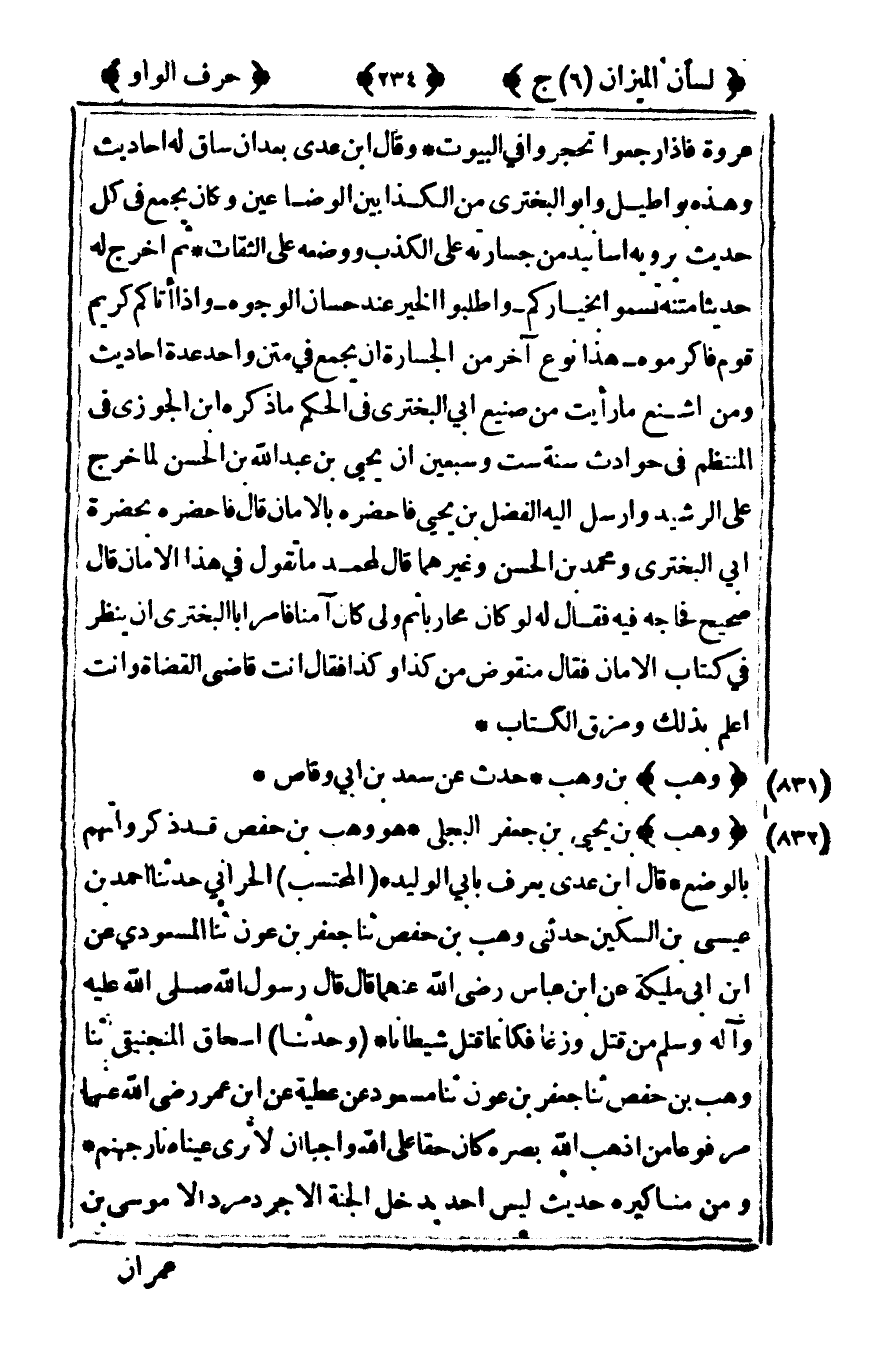 ﴿ لسان الميزان (٦) ج ﴾ ﴿ ٢٣٤ ﴾ ﴿ حرف الواو ﴾
عروة فاذا رجعوا تحجروا في البيوت * وقال ابن عدى بعد ان ساق له احاديث
وهذه بواطيل وابو البخترى من الكذابين الوضاعين وكان يجمع فى كل
حديث يرويه اسانيد من جسارته على الكذب ووضعه على الثقات * ثم اخرج له
حديثا متنه تسموا بخياركم ـ واطلبوا الخير عند حسان الوجوه ـ واذا أتاكم كريم
قوم فاكرموه ـ هذا نوع آخر من الجسارة ان يجمع في متن واحد عدة احاديث
ومن اشنع مارأيت من صنيع ابي البخترى فى الحكم ماذكره ابن الجوزى فى
المنتظم فى حوادث سنة ست وسبعين ان يحيى بن عبدالله بن الحسن لما خرج
على الرشيد وارسل اليه الفضل بن يحيى فاحضره بالامان قال فاحضره بحضرة
ابي البخترى ومحمد بن الحسن وغيرهما قال لمحمد ماتقول في هذا الامان قال
صحيح فحاجه فيه فقال له لو كان محاربا ثم ولى كان آمنا فامر ابا البخترى ان ينظر
في كتاب الامان فقال منقوض من كذا وكذا فقال انت قاضى القضاة وانت
اعلم بذلك ومزق الكتاب *
(٨٣١) ﴿ وهب ﴾ بن وهب * حدث عن سعد بن ابي وقاص *
(٨٣٢) ﴿ وهب ﴾ بن يحيى بن جعفر البجلى * هو وهب بن حفص قد ذكر واتهم
بالوضع * قال ابن عدى يعرف بابي الوليد * (المحتسب) الحراني حدثنا احمد بن
عيسى بن السكين حدثنى وهب بن حفص ثنا جعفر بن عون ثنا المسعودي عن
ابن ابى مليكة عن ابن عباس رضى الله عنهما قال قال رسول الله صلى الله عليه
وآله وسلم من قتل وزغا فكانما قتل شيطانا * (وحدثنا) اسحاق المنجنيقى ثنا
وهب بن حفص ثنا جعفر بن عون ثنا مسعود عن عطية عن ابن عمر رضى الله عنهما
مرفوعا من اذهب الله بصره كان حقا على الله واجبا ان لا ترى عيناه نار جهنم *
ومن مناكيره حديث ليس احد يدخل الجنة الا جرد مرد الا موسى بن
عمران